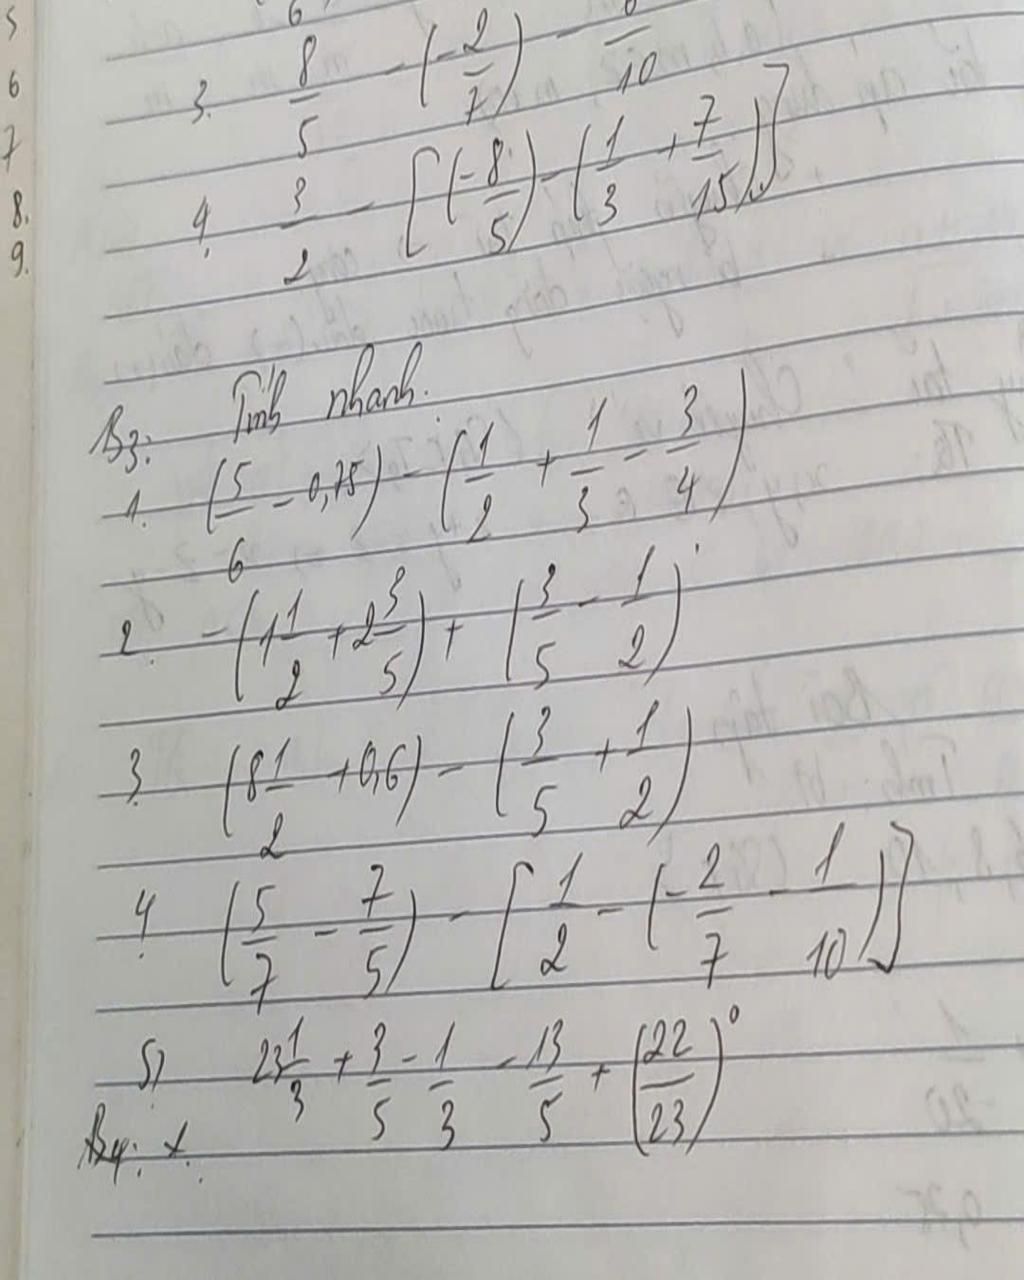 5
6
7
8.
9.
6
3. 8/5 - (-2/7) - /10
4. 3/2 - [(-8/5) - (1/3 + 7/15)]
B3: Tính nhanh.
1. (5/6 - 0,75) - (1/2 + 1/3 - 3/4)
2. - (1 1/2 + 2 3/5) + (3/5 - 1/2)
3. (8 1/2 + 0,6) - (3/5 + 1/2)
4. (5/7 - 7/5) - [1/2 - (-2/7 - 1/10)]
5) 23 1/3 + 3/5 - 1/3 - 13/5 + (22/23)⁰
B4: x.